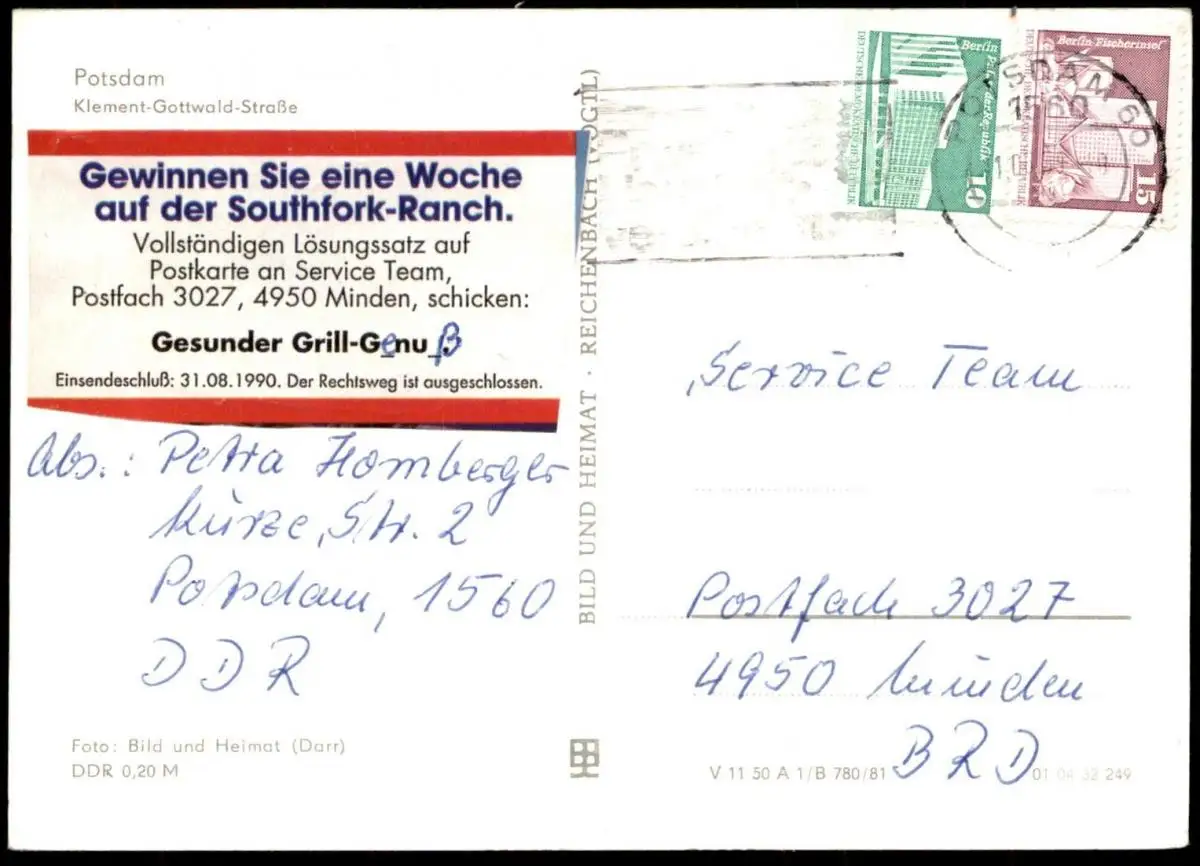 Potsdam
Klement-Gottwald-Straße
Gewinnen Sie eine Woche
auf der Southfork-Ranch.
Vollständigen Lösungssatz auf
Postkarte an Service Team,
Postfach 3027, 4950 Minden, schicken:
Gesunder Grill-Genuß.
Einsendeschluß: 31.08.1990. Der Rechtsweg ist ausgeschlossen.
Abs.: Petra Homberger
Kurze Str. 2
Potsdam, 1560
DDR
Foto: Bild und Heimat (Darr)
DDR 0,20 M
BILD UND HEIMAT · REICHENBACH (VOGTL)
Berlin
Palast der Republik
DEUTSCHE DEMOKRATISCHE REPUBLIK
10
Berlin-Fischerinsel
DEUTSCHE DEMOKRATISCHE REPUBLIK
15
POTSDAM 60
1560
Service Team
Postfach 3027
4950 Minden
BRD
V 11 50 A 1/B 780/81
01 04 32 249